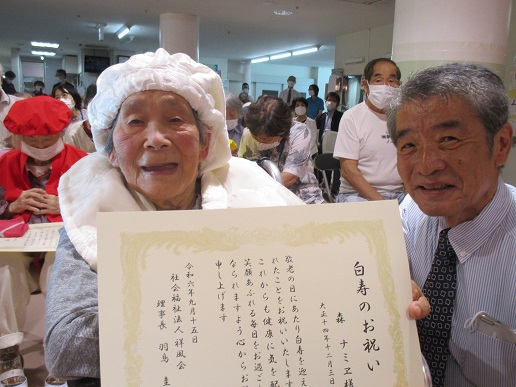 白寿のお祝い
森 ナミヱ様
大正十四年十二月三日
敬老の日にあたり白寿を迎え
れたことをお祝いいたします
これからも健康に気を配
笑顔あふれる毎日をお過ご
なられますよう心からお
申し上げます
令和六年九月十五日
社会福祉法人祥風会
理事長 羽鳥